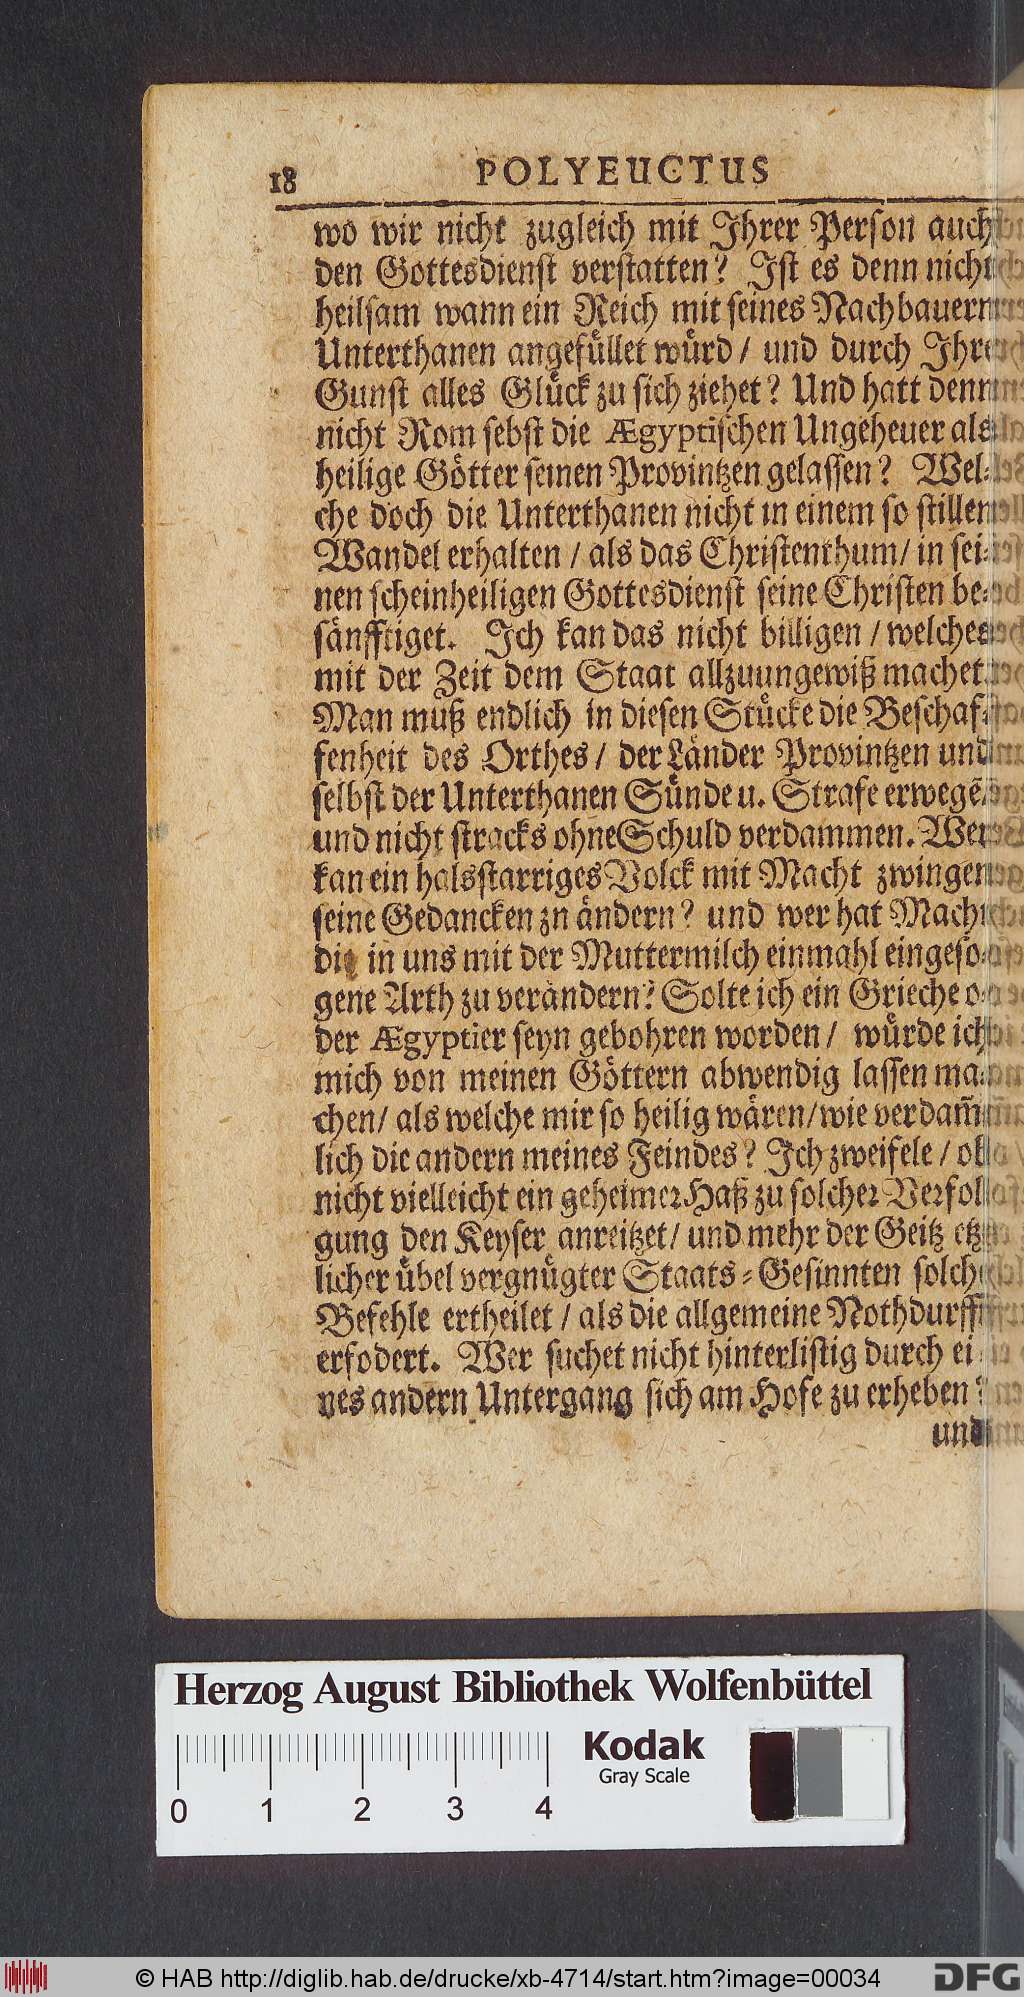 18 POLYEUCTUS
wo wir nicht zugleich mit Ihrer Person auch
den Gottesdienst verstatten? Ist es denn nicht
heilsam wann ein Reich mit seines Nachbauern
Unterthanen angefüllet würd / und durch Ihre
Gunst alles Glück zu sich ziehet? Und hatt denn
nicht Rom sebst die Ægyptischen Ungeheuer als
heilige Götter seinen Provintzen gelassen? Wel-
che doch die Unterthanen nicht in einem so stillen
Wandel erhalten / als das Christenthum / in sei-
nen scheinheiligen Gottesdienst seine Christen be-
sänfftiget. Ich kan das nicht billigen / welches
mit der Zeit dem Staat allzuungewiß machet.
Man muß endlich in diesen Stücke die Beschaf-
fenheit des Orthes / der Länder Provintzen und
selbst der Unterthanen Sünde u. Strafe erwegẽ/
und nicht stracks ohne Schuld verdammen. Wer
kan ein halsstarriges Volck mit Macht zwingen
seine Gedancken zn ändern? und wer hat Macht
die in uns mit der Muttermilch einmahl eingeso-
gene Arth zu verändern? Solte ich ein Grieche o-
der Ægyptier seyn gebohren worden / würde ich
mich von meinen Göttern abwendig lassen ma-
chen / als welche mir so heilig wären / wie verdam̃-
lich die andern meines Feindes? Ich zweifele / ob
nicht vielleicht ein geheimer Haß zu solcher Verfol-
gung den Keyser anreitzet / und mehr der Geitz etz-
licher übel vergnügter Staats-Gesinnten solche
Befehle ertheilet / als die allgemeine Nothdurfft
erfodert. Wer suchet nicht hinterlistig durch ei-
nes andern Untergang sich am Hofe zu erheben?
und
Herzog August Bibliothek Wolfenbüttel
Kodak
Gray Scale
0 1 2 3 4
© HAB http://diglib.hab.de/drucke/xb-4714/start.htm?image=00034
DFG